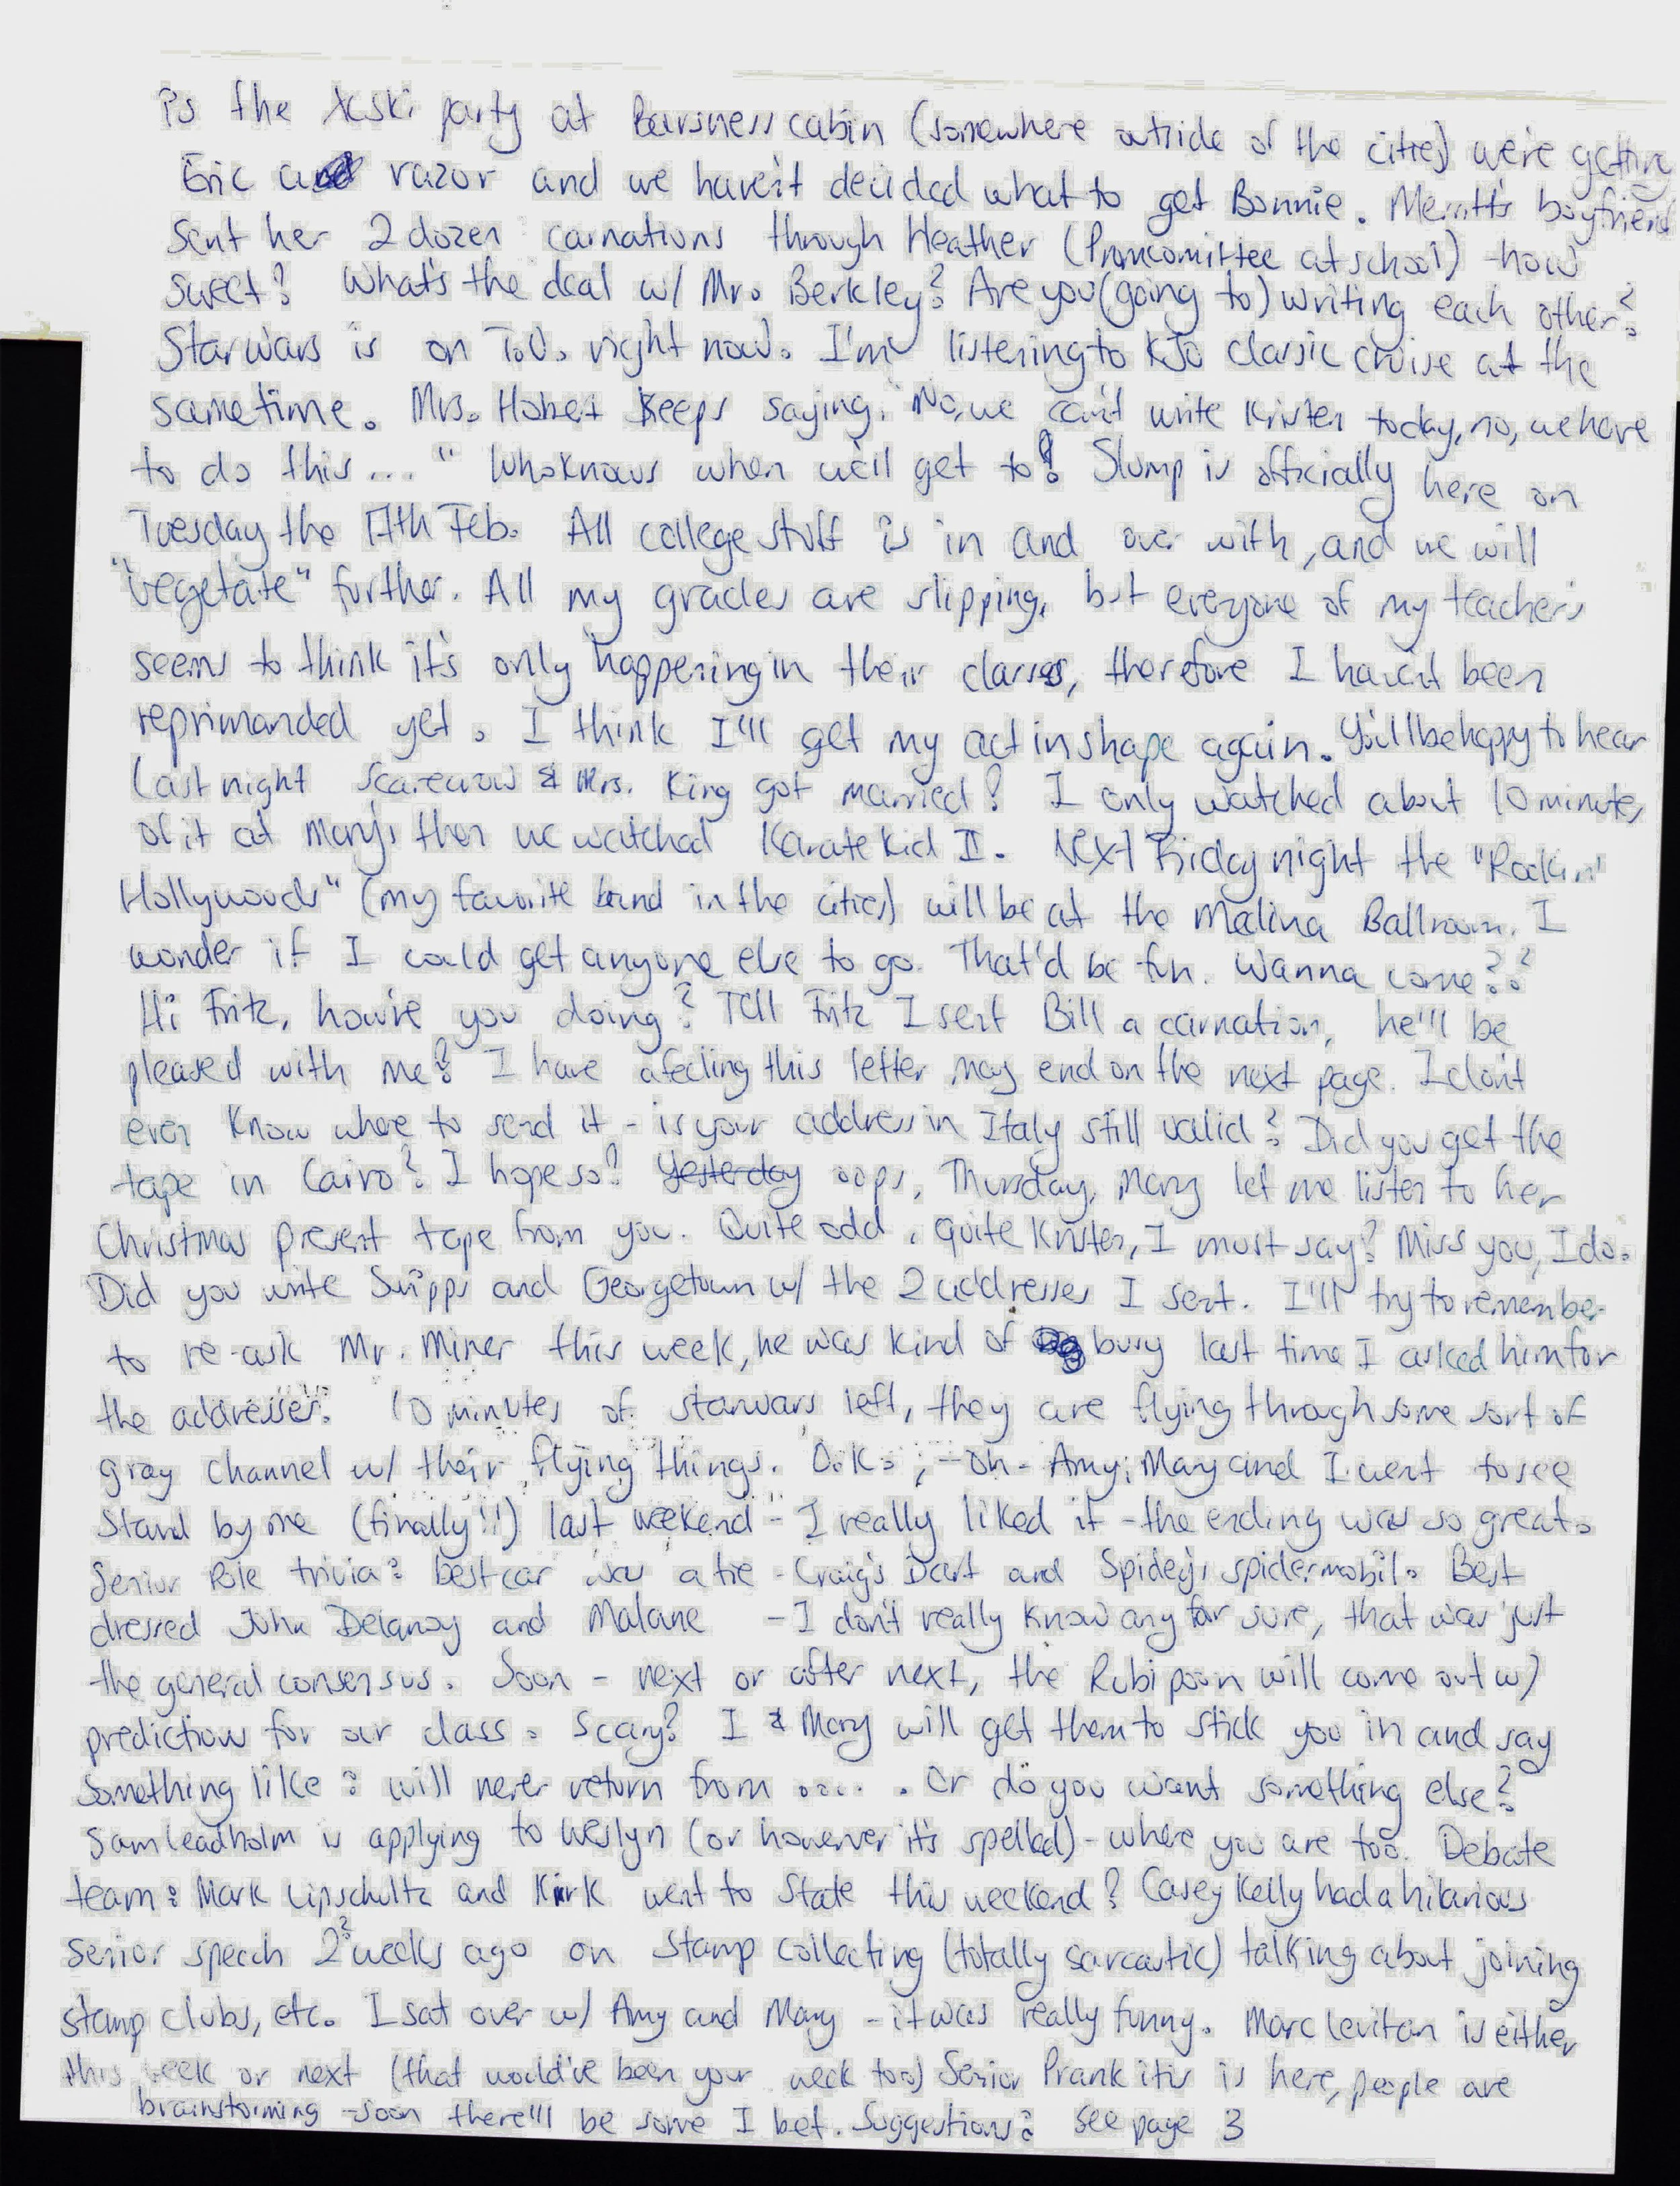 is the Xski party at Barsness cabin (somewhere outside of the cities) we're getting
Eric a razor and we haven't decided what to get Bonnie. Merritt's boyfriend
sent her 2 dozen carnations through Heather (Promcomittee at school) - how
sweet? What's the deal w/ Mr. Berkley? Are you (going to) writing each other?
Starwars is on T.V. right now. I'm listening to KJO classic cruise at the
sametime. Mrs. Hobert keeps saying: "No, we can't write Kristen today, no, we have
to do this..." Who knows when we'll get to! Slump is officially here on
Tuesday the 17th Feb. All college stuff is in and over with, and we will
"vegetate" further. All my grades are slipping, but everyone of my teachers
seems to think it's only happening in their classes, therefore I haven't been
reprimanded yet. I think I'll get my act in shape again. You'll be happy to hear
last night Scarecrow & Mrs. King got married! I only watched about 10 minutes
of it at Mary's then we watched Karate Kid II. Next Friday night the "Rockin'
Hollywoods" (my favorite band in the cities) will be at the Medina Ballroom. I
wonder if I could get anyone else to go. That'd be fun. Wanna come??
Hi Fritz, how're you doing? Tell Fritz I sent Bill a carnation, he'll be
pleased with me! I have a feeling this letter may end on the next page. I don't
even know where to send it - is your address in Italy still valid? Did you get the
tape in Cairo? I hope so! Yesterday oops, Thursday, Mary let me listen to her
Christmas present tape from you. Quite odd, quite Kristen, I must say! Miss you, I do.
Did you write Scripps and Georgetown w/ the 2 addresses I sent. I'll try to remember
to re-ask Mr. Miner this week, he was kind of busy last time I asked him for
the addresses. 10 minutes of starwars left, they are flying through some sort of
gray channel w/ their flying things. O.K. ; - oh - Amy, Mary and I went to see
Stand by me (finally!!) last weekend - I really liked it - the ending was so great.
Senior Pole trivia: best car was a tie - Craig's Dart and Spidey's spidermobil. Best
dressed John Delaney and Malane - I don't really know any for sure, that was just
the general consensus. Soon - next or after next, the Rubipoon will come out w/
predictions for our class. Scary! I & Mary will get them to stick you in and say
something like: will never return from ..... . Or do you want something else?
Sam Leadholm is applying to Weslyn (or however it's spelled) - where you are too. Debate
team: Mark Lipschultz and Kirk went to State this weekend! Casey Kelly had a hilarious
senior speech 2? weeks ago on Stamp collecting (totally sarcastic) talking about joining
stamp clubs, etc. I sat over w/ Amy and Mary - it was really funny. Marc Levitan is either
this week or next (that would've been your week too) Senior Prank itis is here, people are
brainstorming - soon there'll be some I bet. Suggestions? See page 3